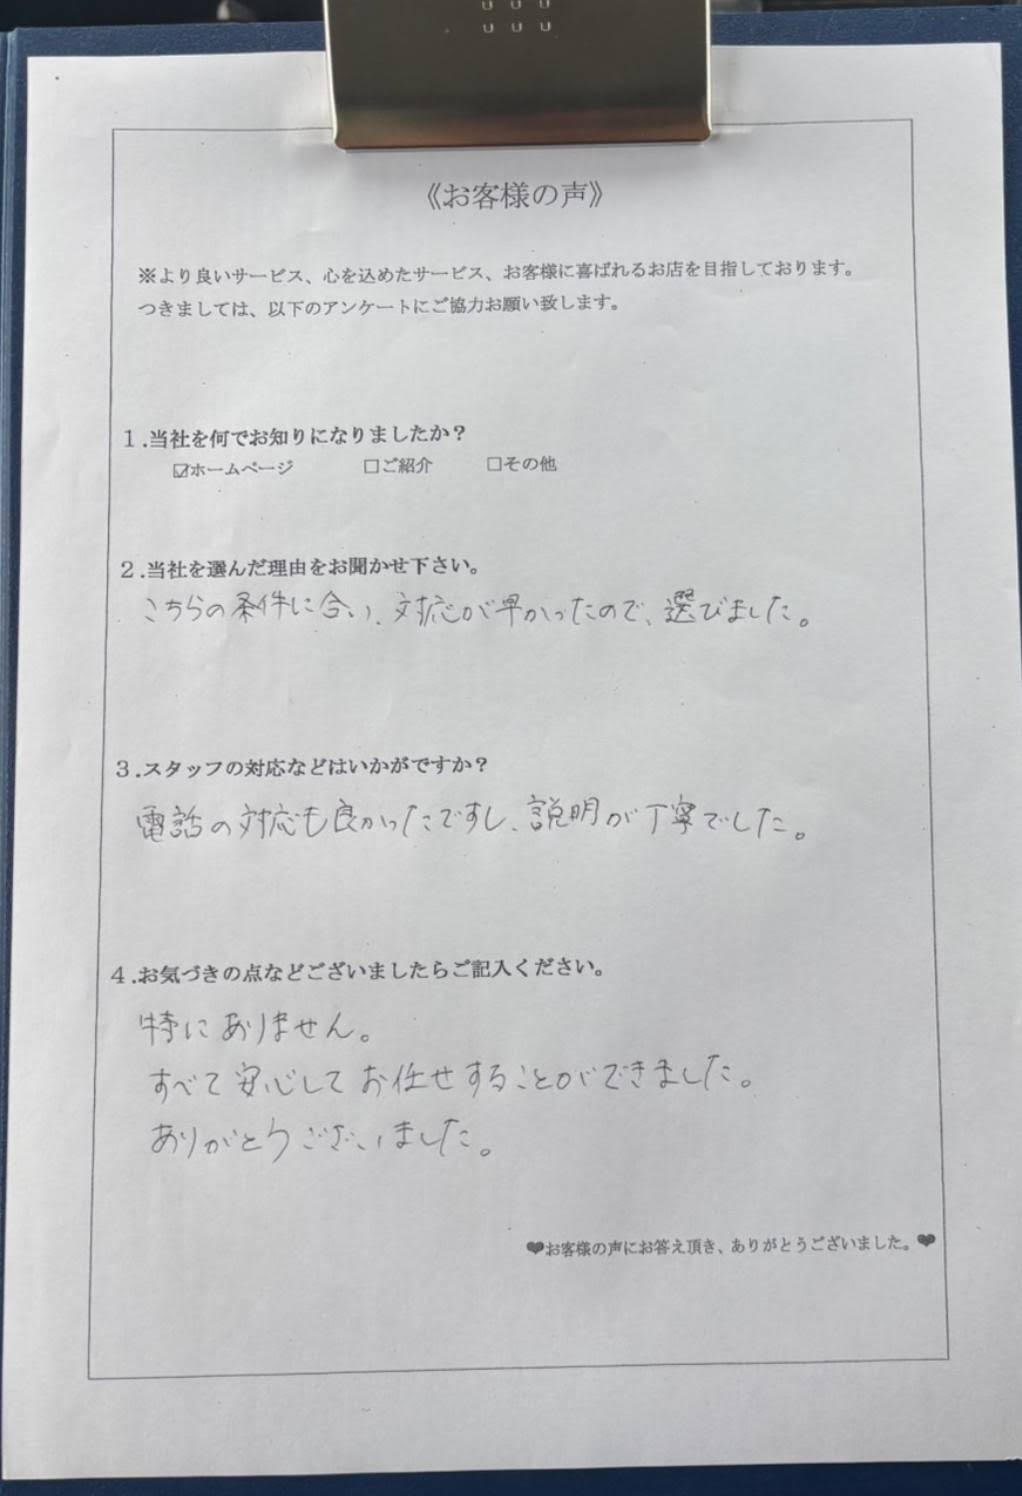 《お客様の声》
※より良いサービス、心を込めたサービス、お客様に喜ばれるお店を目指しております。
つきましては、以下のアンケートにご協力お願い致します。
1.当社を何でお知りになりましたか？
☑ホームページ □ご紹介 □その他
2.当社を選んだ理由をお聞かせ下さい。
こちらの条件に合い、対応が早かったので、選びました。
3.スタッフの対応などはいかがですか？
電話の対応も良かったですし、説明が丁寧でした。
4.お気づきの点などございましたらご記入ください。
特にありません。
すべて安心してお任せすることができました。
ありがとうございました。
❤お客様の声にお答え頂き、ありがとうございました。❤